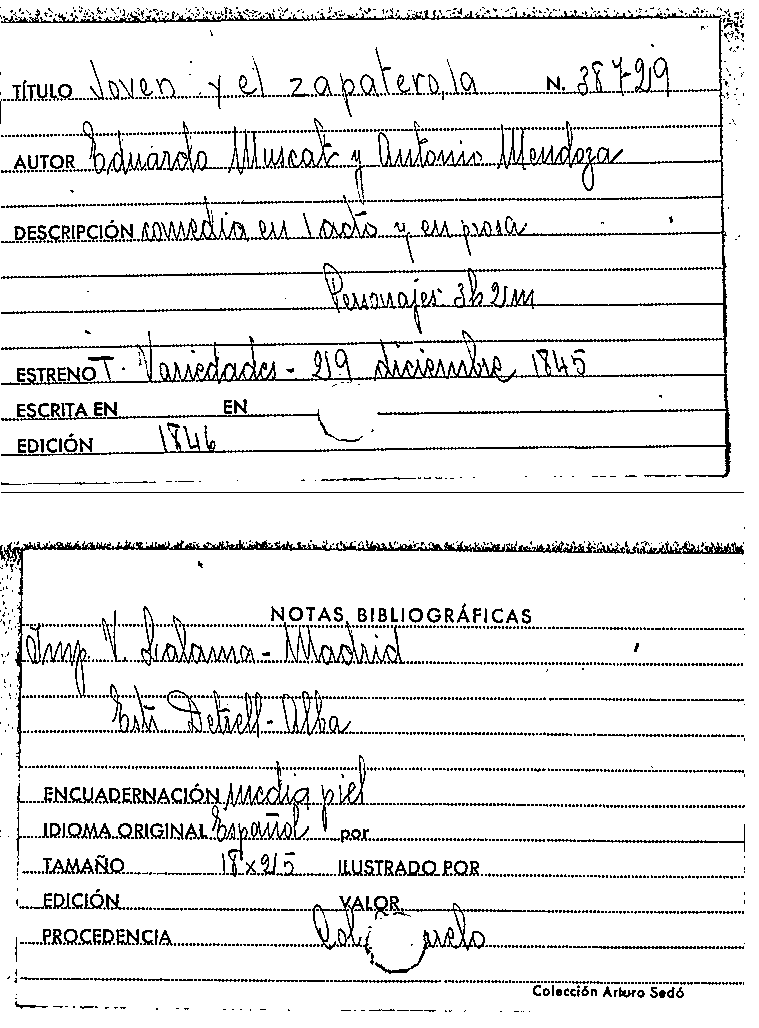 TÍTULO Joven y el zapatero, la N. 387-29
AUTOR Eduardo Muscat y Antonio Mendoza
DESCRIPCIÓN comedia en 1 acto y en prosa
Personajes: 3h 2m
ESTRENO T. Variedades - 29 diciembre 1845
ESCRITA EN EN
EDICIÓN 1846
NOTAS BIBLIOGRÁFICAS
Imp. V. Lalama - Madrid
Detrell - Alba
ENCUADERNACIÓN media piel
IDIOMA ORIGINAL Español por
TAMAÑO 18 x 25 ILUSTRADO POR
EDICIÓN VALOR
PROCEDENCIA
Colección Arturo Sedó